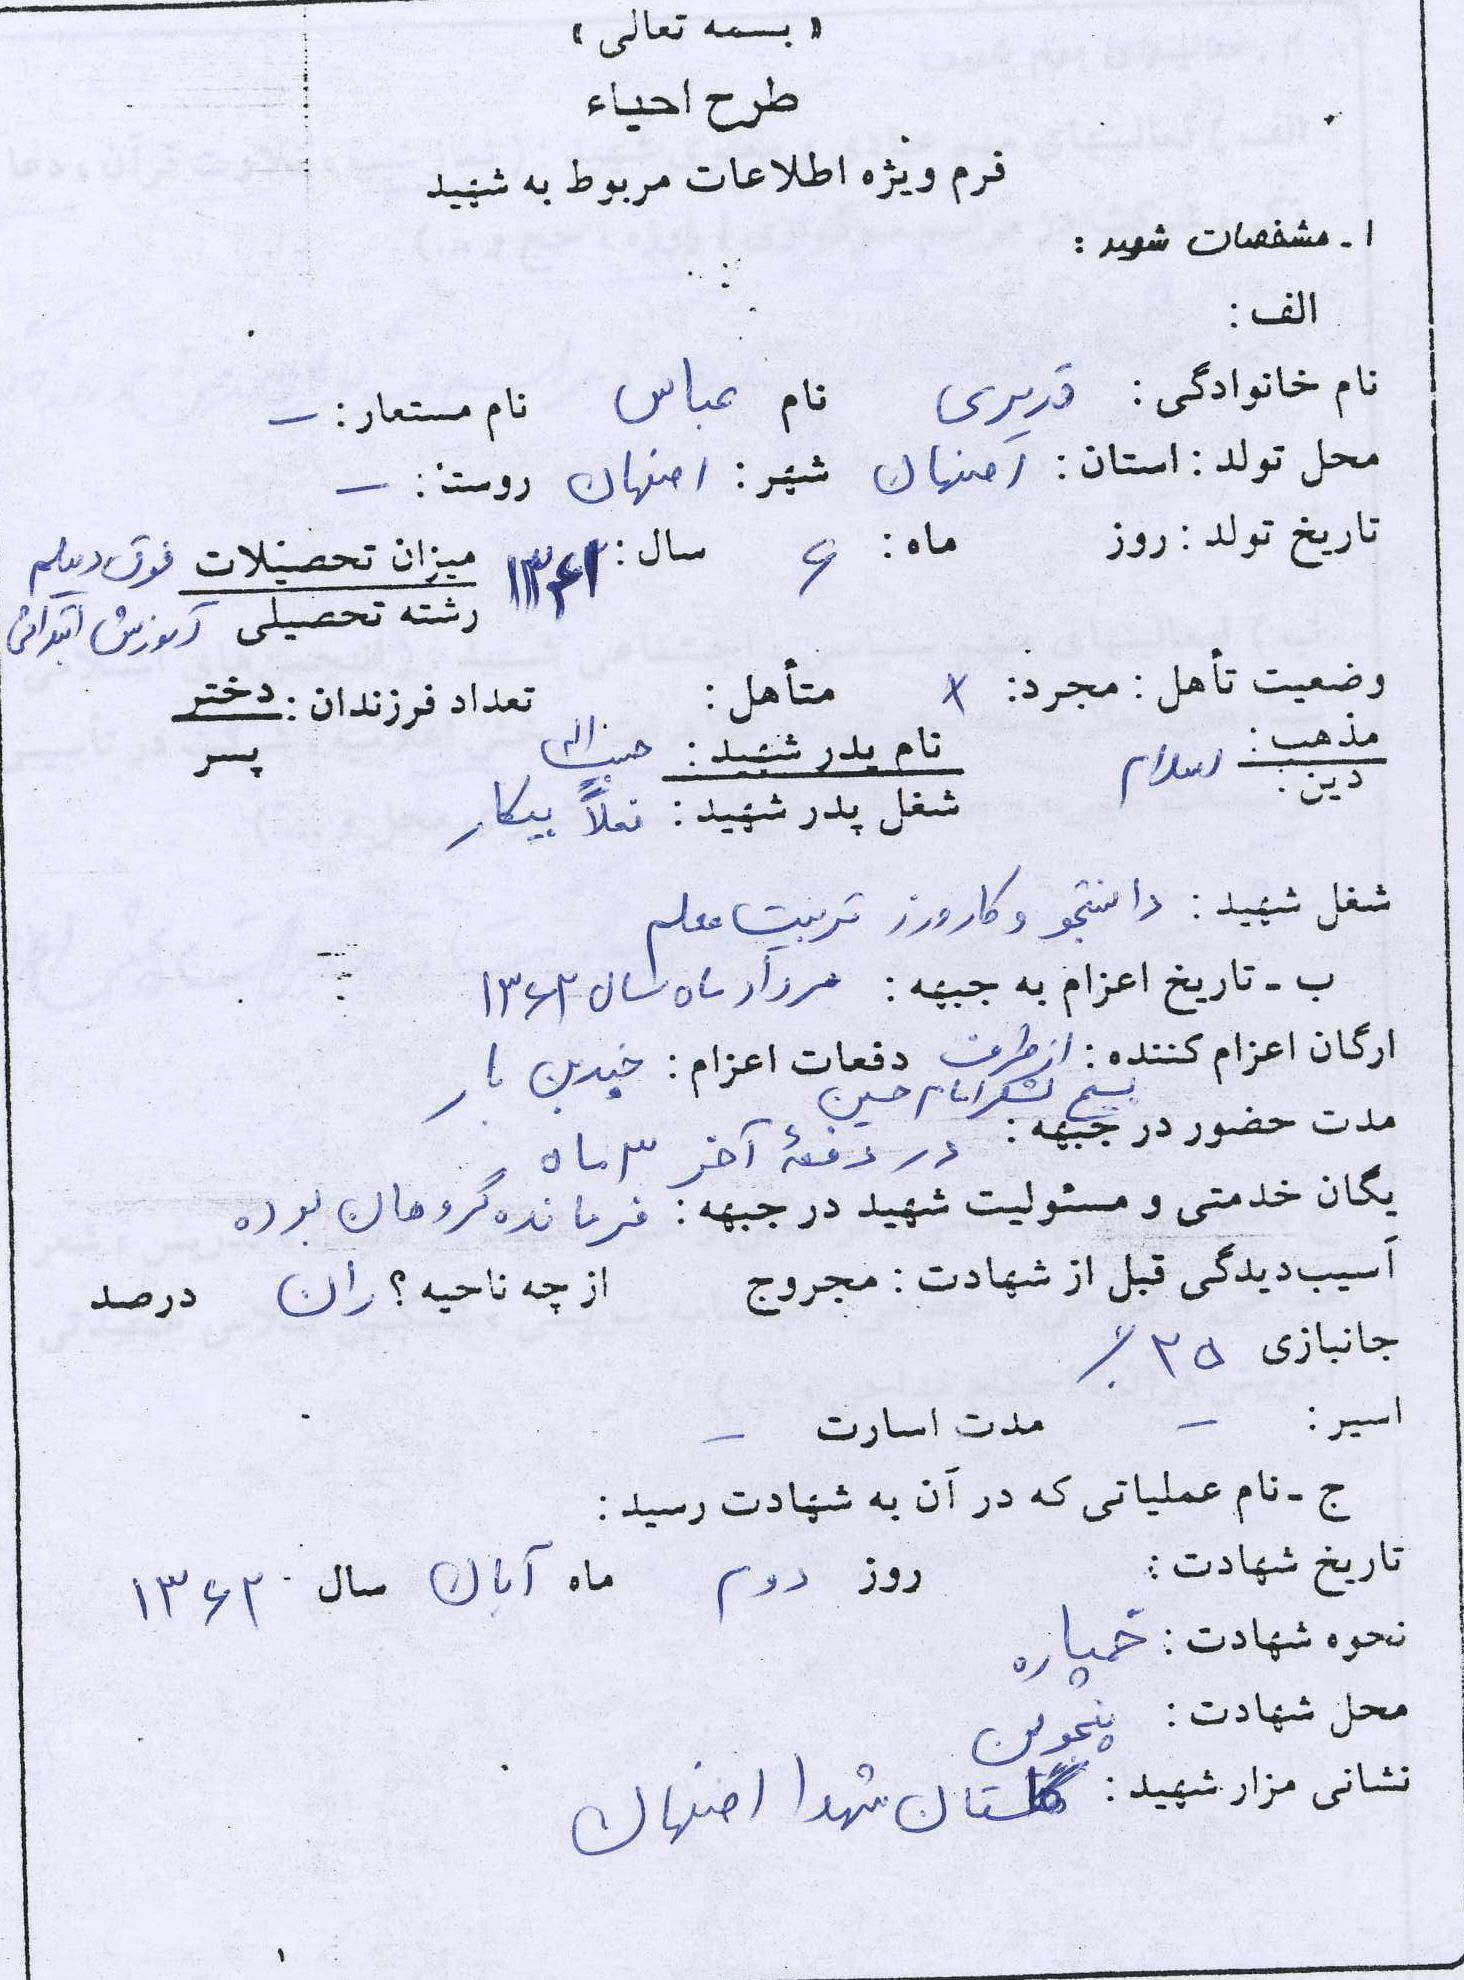 « بسمه تعالی »
طرح احیاء
فرم ویژه اطلاعات مربوط به شهید
۱ ـ مشخصات شهید :
الف :
نام خانوادگی : قدیری نام عباس نام مستعار : ـ
محل تولد : استان : اصفهان شهر : اصفهان روستا : ـ
تاریخ تولد : روز ماه : ۶ سال : میزان تحصیلات فوق دیپلم
رشته تحصیلی آموزش ابتدائی
وضعیت تأهل : مجرد : x متأهل : تعداد فرزندان : دختر
پسر
مذهب : نام پدر شهید : حبیب الله
دین : اسلام شغل پدر شهید : فعلاً بیکار
شغل شهید : دانشجو و کارورز تربیت معلم
ب ـ تاریخ اعزام به جبهه : مرداد ماه سال ۱۳۶۲
ارگان اعزام کننده : از طرف دفعات اعزام : چندین بار
بسیج لشکر امام حسین
مدت حضور در جبهه : در دفعهٔ آخر ۳ ماه
یگان خدمتی و مسئولیت شهید در جبهه : فرمانده گروهان بوده
آسیب‌دیدگی قبل از شهادت : مجروح از چه ناحیه ؟ ران درصد
جانبازی ۲۵ ٪
اسیر : ـ مدت اسارت ـ
ج ـ نام عملیاتی که در آن به شهادت رسید :
تاریخ شهادت : روز دوم ماه آبان سال ۱۳۶۲
نحوه شهادت : خمپاره
محل شهادت : پنجوین
نشانی مزار شهید : گلستان شهدا اصفهان
۱